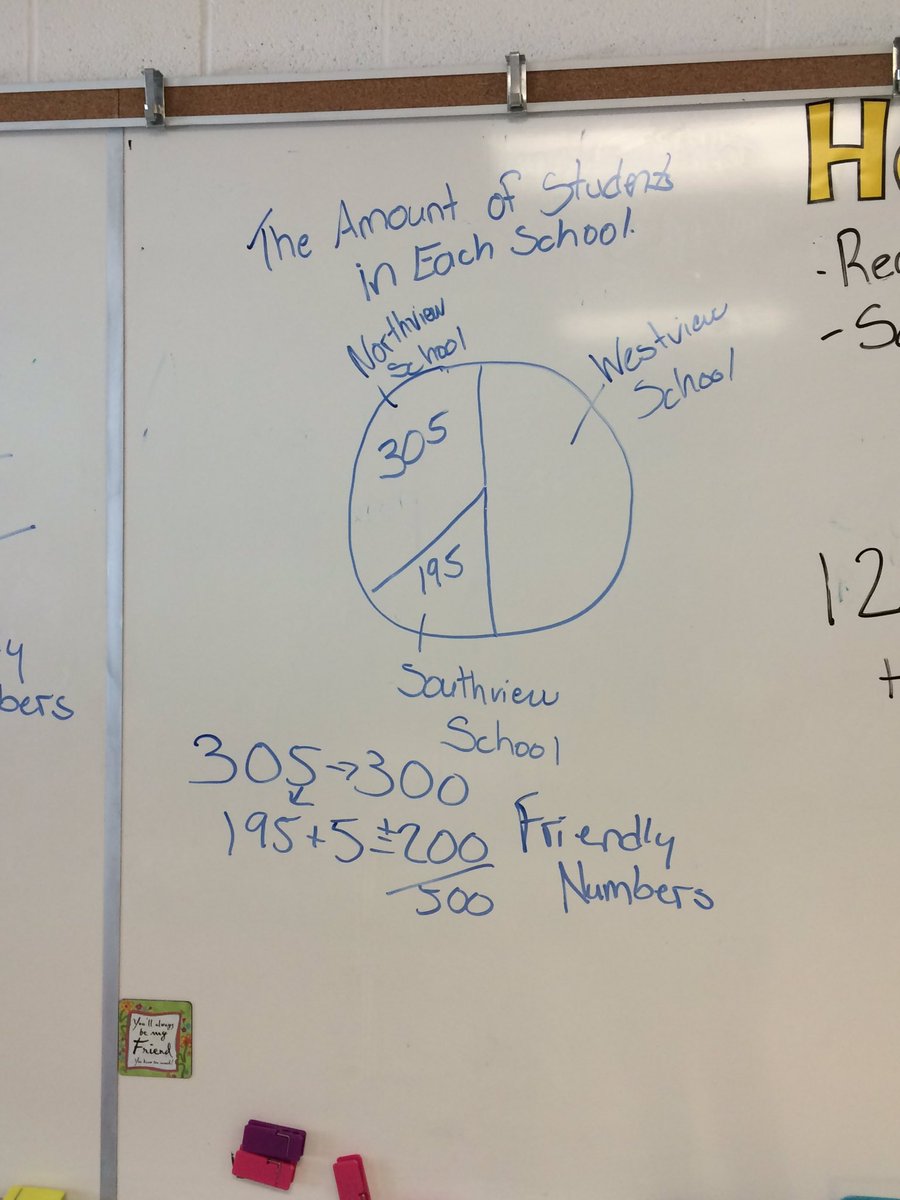 The Amount of Students
in Each School.
Northview
School
Westview
School
305
195
Southview
School
305→300
195+5=+200
500
Friendly
Numbers
You'll always
be my
Friend
H
-Rec
-So
12
+
y
bers